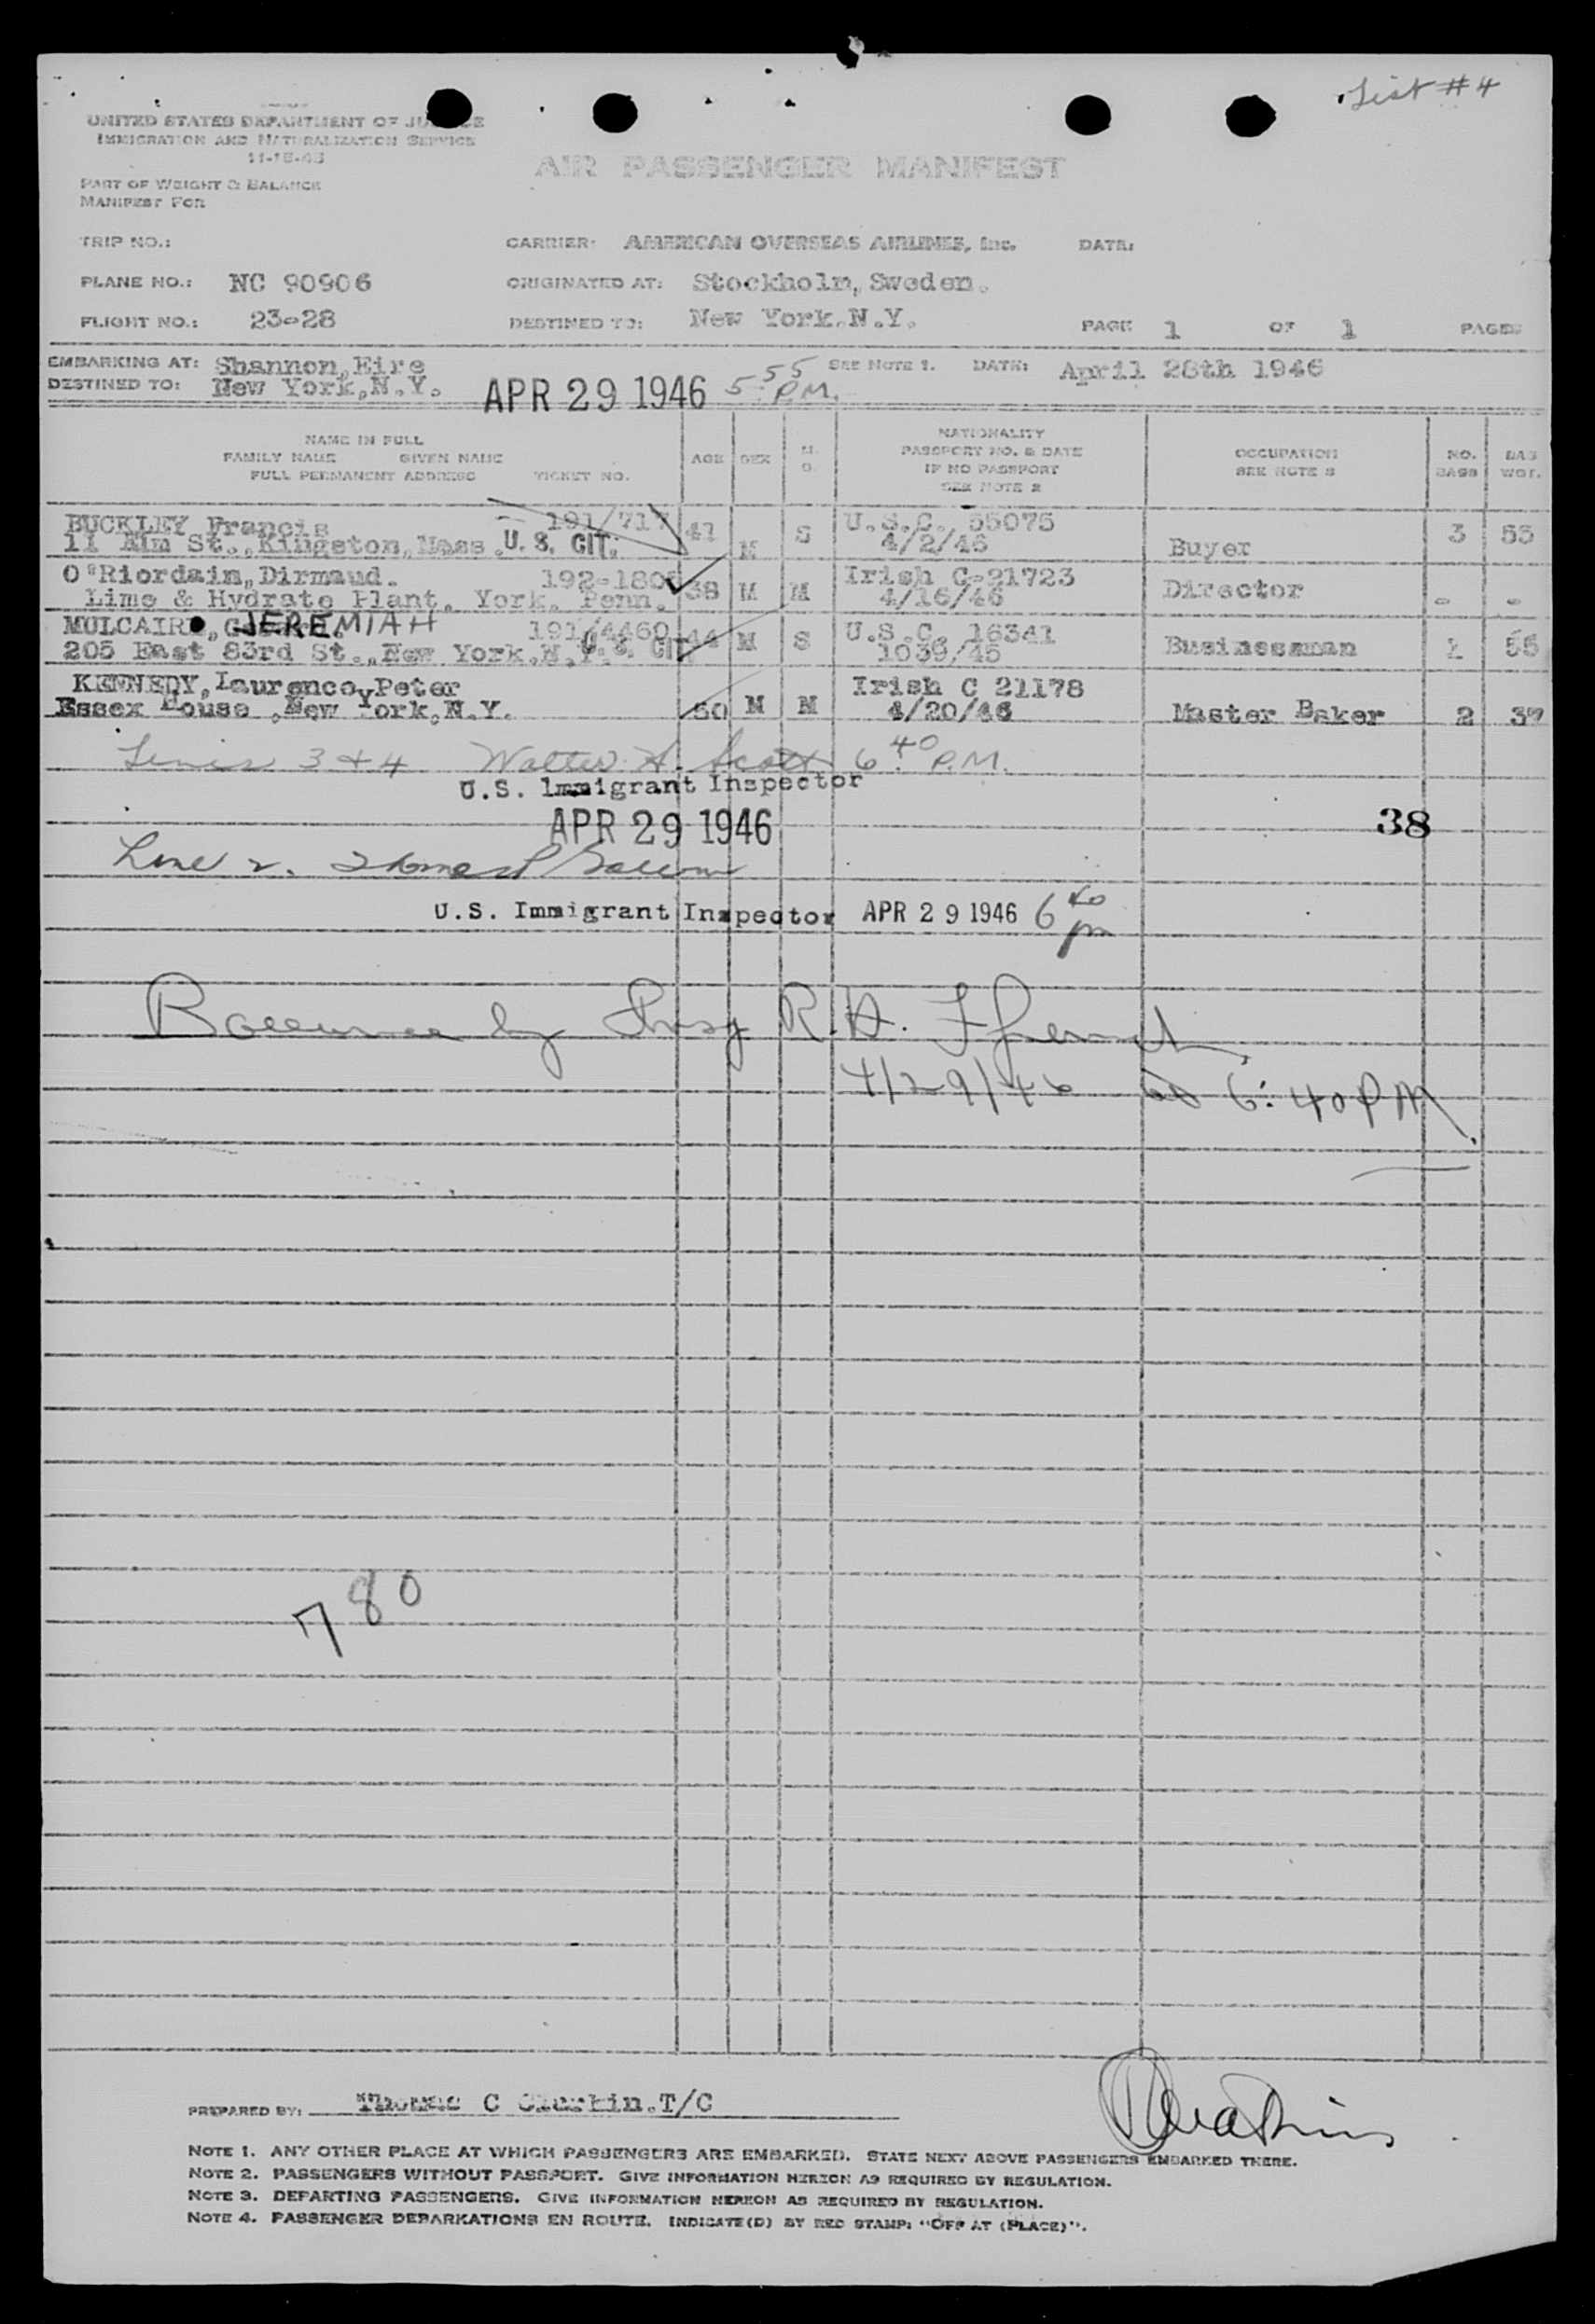 List #4
UNITED STATES DEPARTMENT OF JU CE
IMMIGRATION AND NATURALIZATION SERVICE
11-15-43
AIR PASSENGER MANIFEST
PART OF WEIGHT & BALANCE
MANIFEST FOR
TRIP NO.: CARRIER: AMERICAN OVERSEAS AIRLINES, Inc. DATE:
PLANE NO.: NC 90906 ORIGINATED AT: Stockholm, Sweden.
FLIGHT NO.: 23-28 DESTINED TO: New York,N.Y. PAGE 1 OF 1 PAGES
EMBARKING AT: Shannon,Eire SEE NOTE 1. DATE: April 28th 1946
DESTINED TO: New York,N.Y. APR 29 1946 5:55 P.M.
NAME IN FULL
FAMILY NAME GIVEN NAME
FULL PERMANENT ADDRESS TICKET NO.
AGE SEX M. S.
NATIONALITY
PASSPORT NO. & DATE
IF NO PASSPORT
SEE NOTE 2
OCCUPATION
SEE NOTE 3
NO. BAGS
BAG WGT.
BUCKLEY Francis 191/717 41 M S U.S.C. 55075 3 55
11 Elm St.,Kingston,Mass. U. S. CIT. 4/2/46 Buyer
O'Riordain,Dirmaud. 192-180 38 M M Irish C-21723 Director - -
Lime & Hydrate Plant. York. Penn. 4/16/46
MULCAIR , JEREMIAH 191/4460 44 M S U.S.C. 16341 Businessman 1 55
205 East 83rd St.,New York,N.Y. U. S. CIT. 1039/45
KENNEDY,Laurence,Peter Irish C 21178
Essex House ,New York,N.Y. 50 M M 4/20/46 Master Baker 2 37
Lines 3 + 4 Walter A. Scott 6:40 P.M.
U.S. Immigrant Inspector
APR 29 1946 38
Line 2.
U.S. Immigrant Inspector APR 29 1946 6:40 pm
by Insp R.A.
4/29/46 at 6:40 PM.
780
PREPARED BY: Thomas C Clarkin.T/C
NOTE 1. ANY OTHER PLACE AT WHICH PASSENGERS ARE EMBARKED. STATE NEXT ABOVE PASSENGERS EMBARKED THERE.
NOTE 2. PASSENGERS WITHOUT PASSPORT. GIVE INFORMATION HEREON AS REQUIRED BY REGULATION.
NOTE 3. DEPARTING PASSENGERS. GIVE INFORMATION HEREON AS REQUIRED BY REGULATION.
NOTE 4. PASSENGER DEBARKATIONS EN ROUTE. INDICATE(D) BY RED STAMP: "OFF AT (PLACE)".